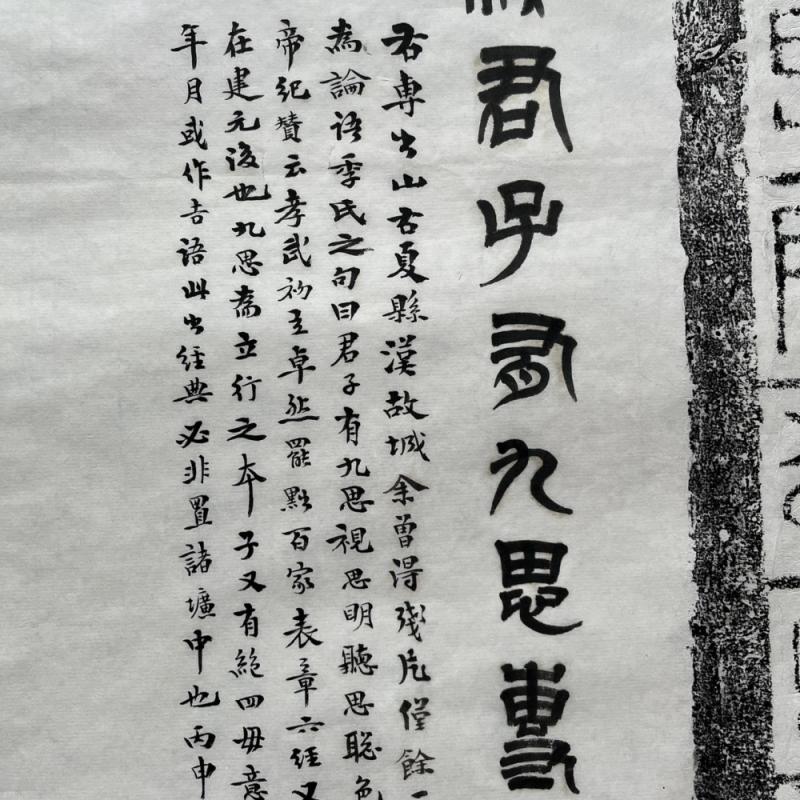 君子有九思專
右專出山右夏縣漢故城余曾得殘片僅餘一
為論語季氏之句曰君子有九思視思明聽思聰色
帝紀贊云孝武初立卓然罷黜百家表章六經又
在建元後也九思為立行之本子又有絕四毋意
年月或作吉語此出經典必非置諸壙中也丙申